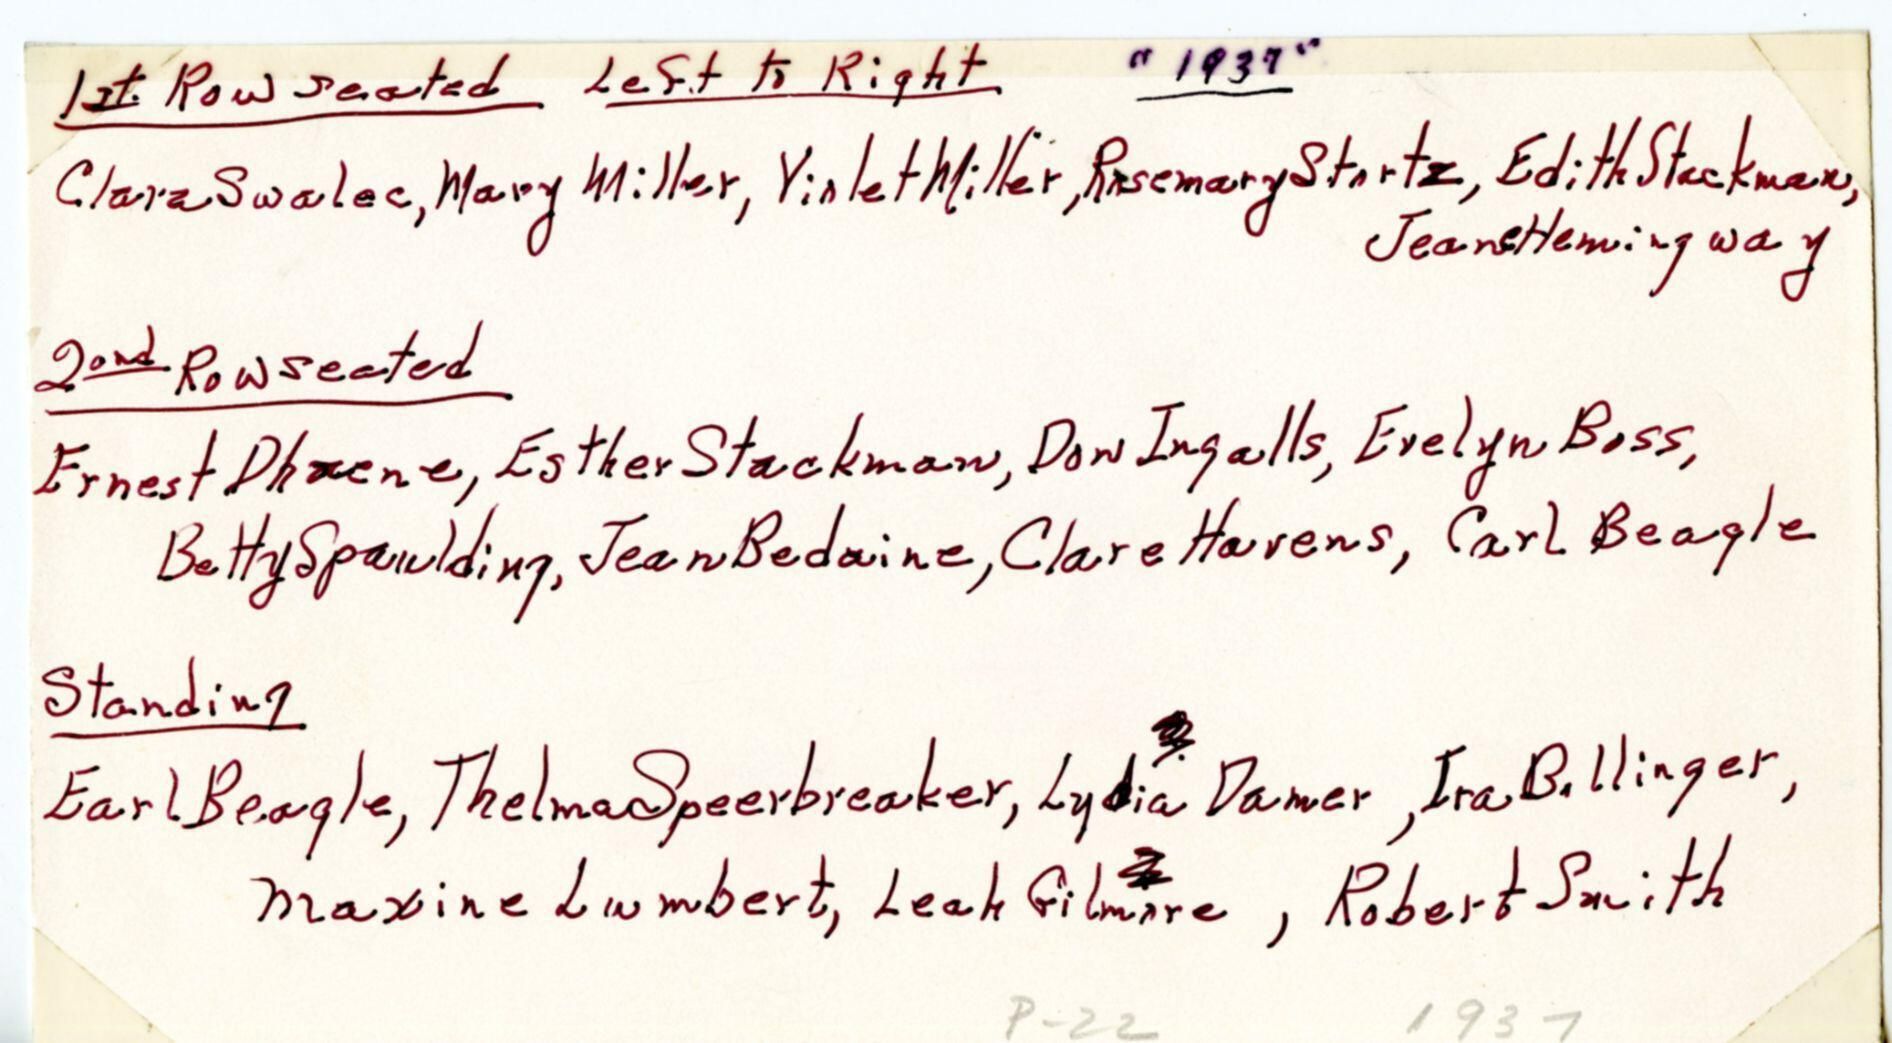 1st. Row seated Left to Right "1937"
Clara Swalec, Mary Miller, Violet Miller, Rosemary Stortz, Edith Stackman,
Jeane Hemingway
2ond Row seated
Ernest Dhaene, Esther Stackman, Don Ingalls, Evelyn Boss,
Betty Spaulding, Jean Bedaine, Clare Havens, Carl Beagle
Standing
Earl Beagle, Thelma Speerbreaker, Lydia Damer, Ira Billinger,
Maxine Lumbert, Leah Gilmore, Robert Smith
P-22 1937